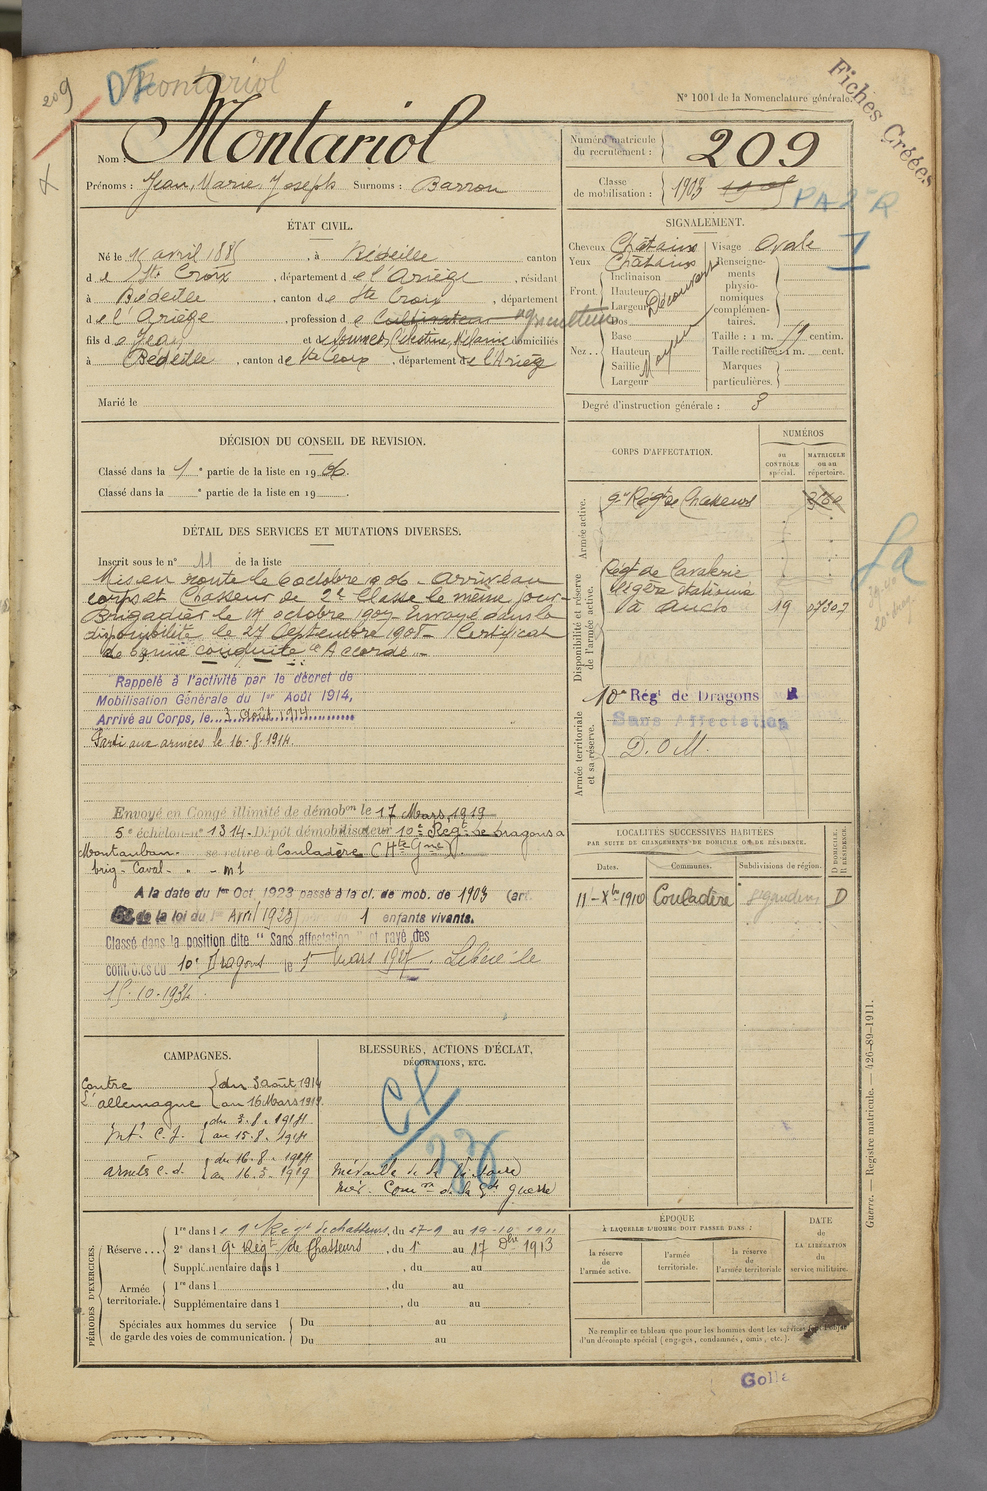 209
DF
Montariol
Fiches Créées
N° 1001 de la Nomenclature générale.
Nom : Montariol
Prénoms : Jean, Marie, Joseph Surnoms : Barrou
Numéro matricule du recrutement : 209
Classe de mobilisation : 1903
PA 2e R
ÉTAT CIVIL.
Né le 15 avril 1885, à Bédeille canton
d e Ste Croix, département d e l'Ariège, résidant
à Bédeille, canton de Ste Croix, département
d e l'Ariège, profession d e Cultivateur agriculteur
fils d e Jean et de Soumet, Célestine, Mélanie domiciliés
à Bédeille, canton de Ste Croix, département de l'Ariège
Marié le
SIGNALEMENT.
Cheveux Châtains
Yeux Châtains
Front Inclinaison Hauteur Largeur Découvert
Nez Dos Base Hauteur Saillie Largeur Moyen
Visage Ovale
Renseignements physionomiques complémentaires.
Taille : 1 m. centim.
Taille rectifiée : 1 m. cent.
Marques particulières.
Degré d'instruction générale : 3
DÉCISION DU CONSEIL DE REVISION.
Classé dans la 1e partie de la liste en 1906.
Classé dans la e partie de la liste en 19
DÉTAIL DES SERVICES ET MUTATIONS DIVERSES.
Inscrit sous le n° 11 de la liste
Mis en route le 6 octobre 1906 - Arrivé au
corps et Chasseur de 2e Classe le même jour -
Brigadier le 17 octobre 1907 - Envoyé dans la
disponibilité le 27 Septembre 1908 - Certificat
de bonne conduite "Accordé" -
Rappelé à l'activité par le décret de
Mobilisation Générale du 1er Août 1914,
Arrivé au Corps, le 3 août 1914
Parti aux armées le 16-8-1914.
Envoyé en Congé illimité de démobon le 17 Mars 1919
5e échelon n° 1314 - Dépôt démobilisateur 10e Régt de Dragons a
Montauban - se retire à Couladère (Hte Gne)
brig - Caval - " - m1
A la date du 1er Oct. 1923 passé à la cl. de mob. de 1903 (art.
de la loi du 1er Avril 1923) 1 enfants vivants.
Classé dans la position dite "Sans affectation" et rayé des
contrôles du 10e Dragons le 1er Mars 1927. Libéré le
15-10-1934
CORPS D'AFFECTATION.
NUMÉROS
au CONTRÔLE spécial.
MATRICULE ou au répertoire.
Armée active.
9e Régt de Chasseurs
Disponibilité et réserve de l'armée active.
Régt de Cavalerie
légère stationné
à Auch 19 07307
Armée territoriale et sa réserve.
10e Régt de Dragons
Sans Affectation
D. O M.
LOCALITÉS SUCCESSIVES HABITÉES
PAR SUITE DE CHANGEMENTS DE DOMICILE OU DE RÉSIDENCE.
Dates. Communes. Subdivisions de région. D DOMICILE. R RÉSIDENCE.
11 Xbre 1910 Couladère St gaudens D
CAMPAGNES.
Contre l'allemagne du 3 août 1914
au 16 Mars 1919
Intr C. S. du 3.8.1914
au 15.8.1914
armées C. d. du 16.8.1914
au 16.3.1919
BLESSURES, ACTIONS D'ÉCLAT,
DÉCORATIONS, ETC.
Médaille de la Victoire
Méd. Comve de la Gde guerre
PÉRIODES D'EXERCICES.
Réserve... 1re dans le 9e Régt de chasseurs, du 27-9 au 19-10-1911
2e dans l 9e Régt de Chasseurs, du 1er au 17 Dbre 1913
Supplémentaire dans l , du au
Armée territoriale. 1re dans l , du au
Supplémentaire dans l , du au
Spéciales aux hommes du service de garde des voies de communication. Du au
Du au
ÉPOQUE
À LAQUELLE L'HOMME DOIT PASSER DANS :
la réserve de l'armée active.
l'armée territoriale.
la réserve de l'armée territoriale
DATE DE LA LIBÉRATION du service militaire.
Ne remplir ce tableau que pour les hommes dont les services
d'un décompte spécial (engagés, condamnés, omis, etc.).
Guerre. — Registre matricule. — 426-89-1911.